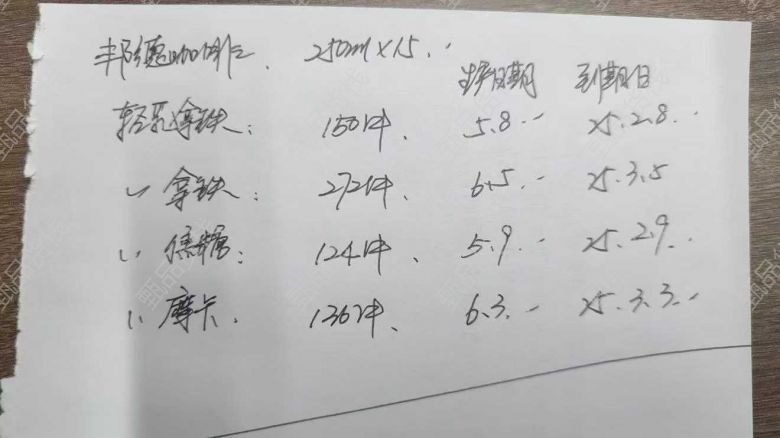 邦德咖啡. 250ml×15.
生产日期 到期日
轻乳拿铁: 150件. 5.8. 25.2.8.
〃 拿铁: 272件. 6.5. 25.3.5
〃 焦糖: 124件. 5.9. 25.2.9.
〃 摩卡. 136件. 6.3. 25.3.3.